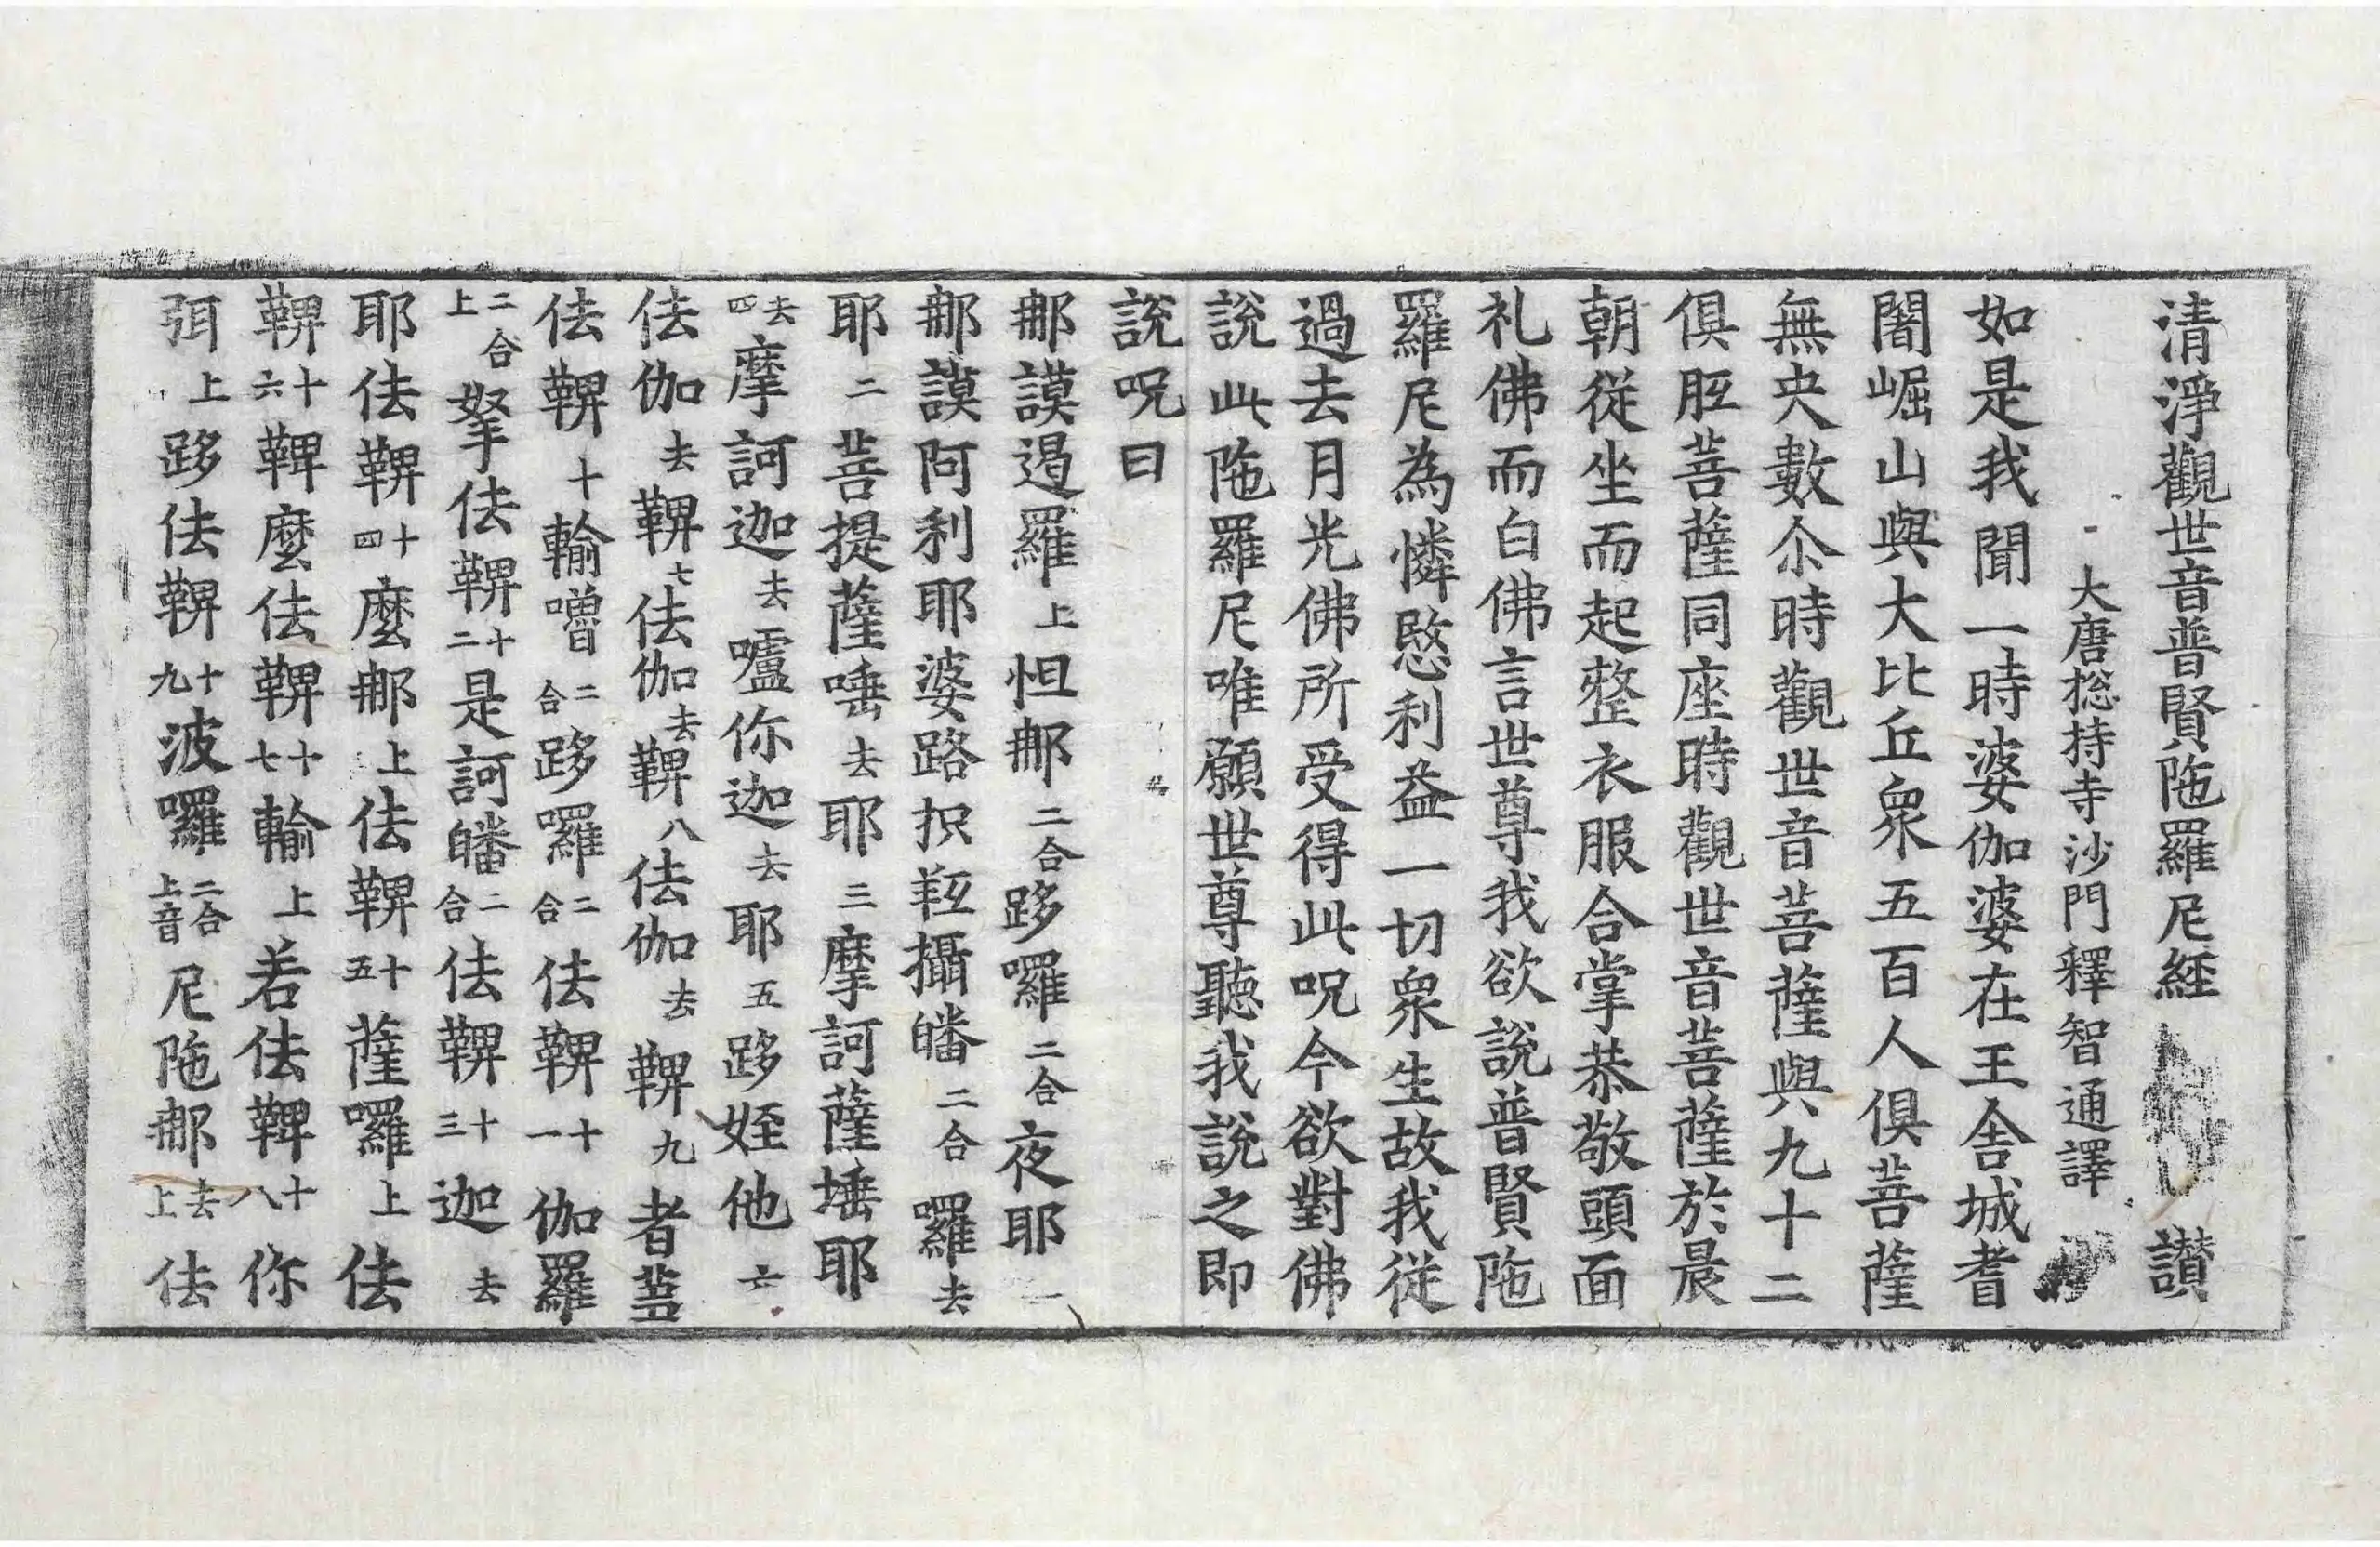 清淨觀世音普賢陁羅尼經 讃
大唐揔持寺沙門釋智通譯
如是我聞一時婆伽婆在王舍城耆
闍崛山與大比丘衆五百人俱菩薩
無央數尒時觀世音菩薩與九十二
俱胝菩薩同座時觀世音菩薩於晨
朝從坐而起整衣服合掌恭敬頭面
礼佛而白佛言世尊我欲說普賢陁
羅尼為憐愍利益一切衆生故我從
過去月光佛所受得此呪今欲對佛
說此陁羅尼唯願世尊聽我說之即
說呪曰
那謨遏羅上怛那二合跢囉二合夜耶一
那謨阿利耶婆路抧羝攝皤二合囉去
耶二菩提薩唾去耶三摩訶薩埵耶
去四摩訶迦去嚧你迦去耶五跢姪他六
佉伽去鞞七佉伽去鞞八佉伽去鞞九者蒭
佉鞞十輸噜二合跢囉二合佉鞞十一伽羅
二合上拏佉鞞十二是訶皤二合佉鞞十三迦去
耶佉鞞十四麼那上佉鞞十五薩囉上佉
鞞十六鞞麼佉鞞十七輸上若佉鞞十八你
弭上跢佉鞞十九波囉二合上音尼陁那去上佉